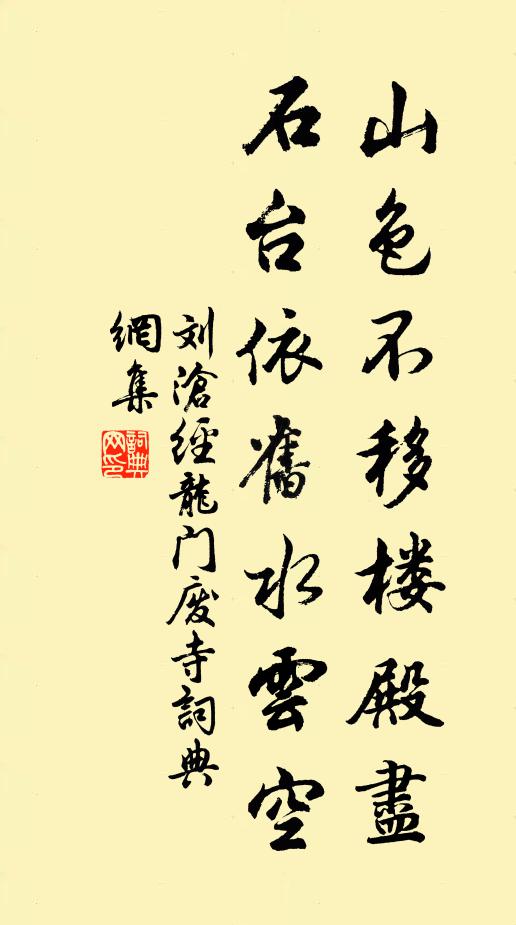 山色不移楼殿盡
石台依舊水雲空
刘滄經龍门废寺詞典
網集
詞典网印